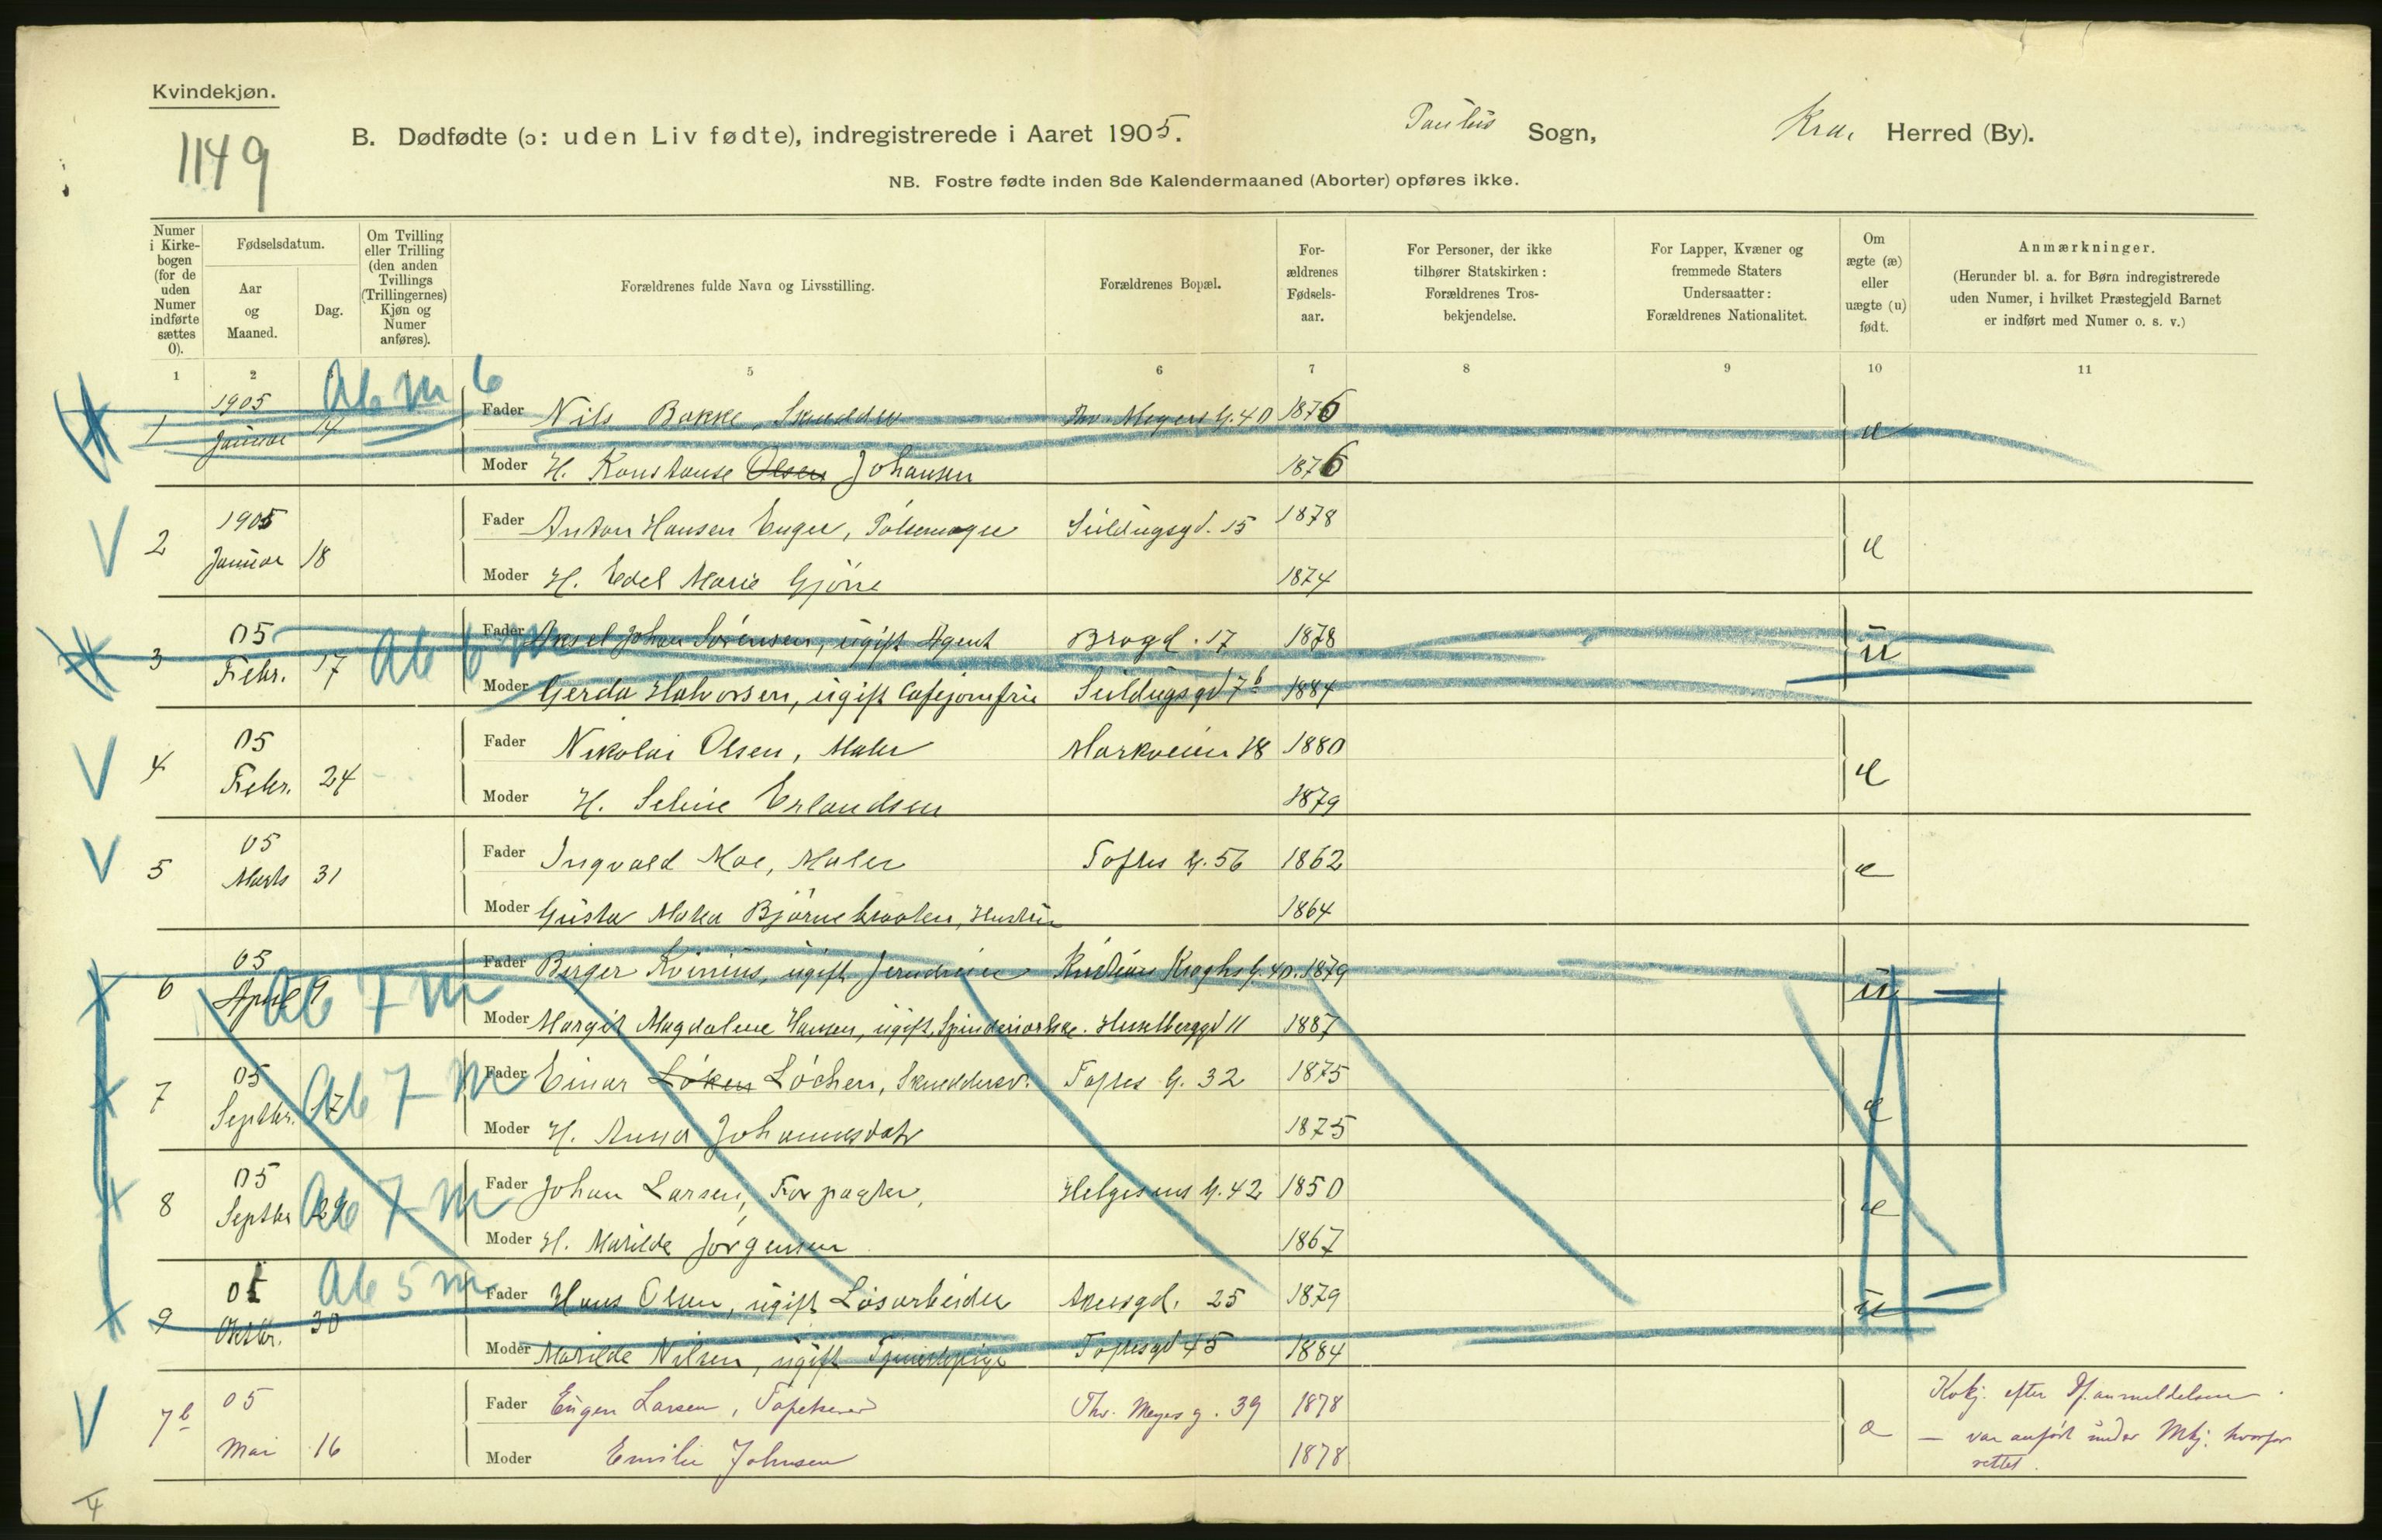 Kvindekjøn.
1149
B. Dødfødte (ɔ: uden Liv fødte), indregistrerede i Aaret 1905. Paulus Sogn, Kra. Herred (By).
NB. Fostre fødte inden 8de Kalendermaaned (Aborter) opføres ikke.
Numer i Kirke-bogen (for de uden Numer indførte sættes 0).
Fødselsdatum.
Aar og Maaned.
Dag.
Om Tvilling eller Trilling (den anden Tvillings (Trillingernes) Kjøn og Numer anføres).
Forældrenes fulde Navn og Livsstilling.
Forældrenes Bopæl.
For-ældrenes Fødsels-aar.
For Personer, der ikke tilhører Statskirken: Forældrenes Tros-bekjendelse.
For Lapper, Kvæner og fremmede Staters Undersaatter: Forældrenes Nationalitet.
Om ægte (æ) eller uægte (u) født.
Anmærkninger.
(Herunder bl. a. for Børn indregistrerede uden Numer, i hvilket Præstegjeld Barnet er indført med Numer o. s. v.)
1 2 5 6 7 8 9 10 11
Ab m 6
1 1905 Januar 14 Fader Nils Bakke, Skrædder Thv. Meyers G. 40 1876 æ
Moder H. Konstanse Olsen Johansen 1876
2 1905 Januar 18 Fader Anton Hansen Enger, Pølsemager Seildugsgd. 15 1878 æ
Moder H. Edel Marie Gjörre 1874
3 05 Febr. 17 Ab 6 m Fader Aksel Johan Sörensen, ugift Agent Brogd. 17 1878 u
Moder Gerda Halvorsen, ugift Cafejomfru Seildugsgd 7b 1884
4 05 Febr. 24 Fader Nikolai Olsen, Maler Markveien 18 1880 æ
Moder H. Seline Erlandsen 1879
5 05 Marts 31 Fader Ingvald Moe, Maler Toftes G. 56 1862 æ
Moder Gusta Björnebraaten, Hustru 1864
6 05 April 9 Ab 7 m Fader Birger Kvinius, ugift Jerndreier Kristian Kroghs G. 40. 1879 u
Moder Margit Magdalene Hansen, ugift, Spinderiarbske. Hesselberggd 11 1887
7 05 Septbr. 17 Ab 7 m Fader Einar Löken Löchen, Skræddersv. Toftes G. 32 1875 æ
Moder H. Anna Johannesdatr 1875
8 05 Septbr 29 Ab 7 m Fader Johan Larsen, Forpagter, Helgesens G. 42 1850 æ
Moder H. Matilde Jörgensen 1867
9 05 Oktbr. 30 Ab 5 m Fader Hans Olsen, ugift Lösarbeider Akersgd. 25 1879 u
Moder Matilde Nilsen, ugift Toftesgd 45 1884
7b 05 Mai 16 Fader Eugen Larsen, Tapetserer Thv. Meyers g. 39 1878 æ
Moder Emilie Johnsen 1878
Kvkj. efter Df. anmeldelsen
— var anført under Mkj. hvorfor
rettet.
4